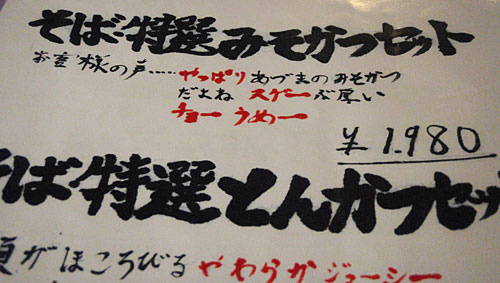 そば・特選みそかつセット
お客様の声……やっぱりあづまのみそかつ
だよね スゲーぶ厚い
チョーうめー
¥1.980
そば・特選とんかつセット
頬がほころびるやわらかジューシー